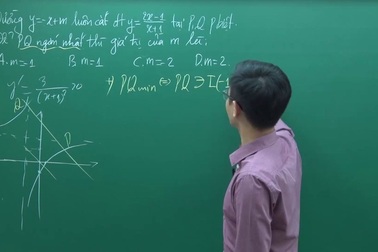 y=-x+m luôn cắt đt y= 2x-1/x+1 tại P,Q p biệt.
PQ ngắn nhất thì giá trị của m là:
A. m=1 B. m=1 C. m=2 D. m=2.
y' = 3/(x+1)² >0 *) PQ min ⇔ PQ ∋ I(-1